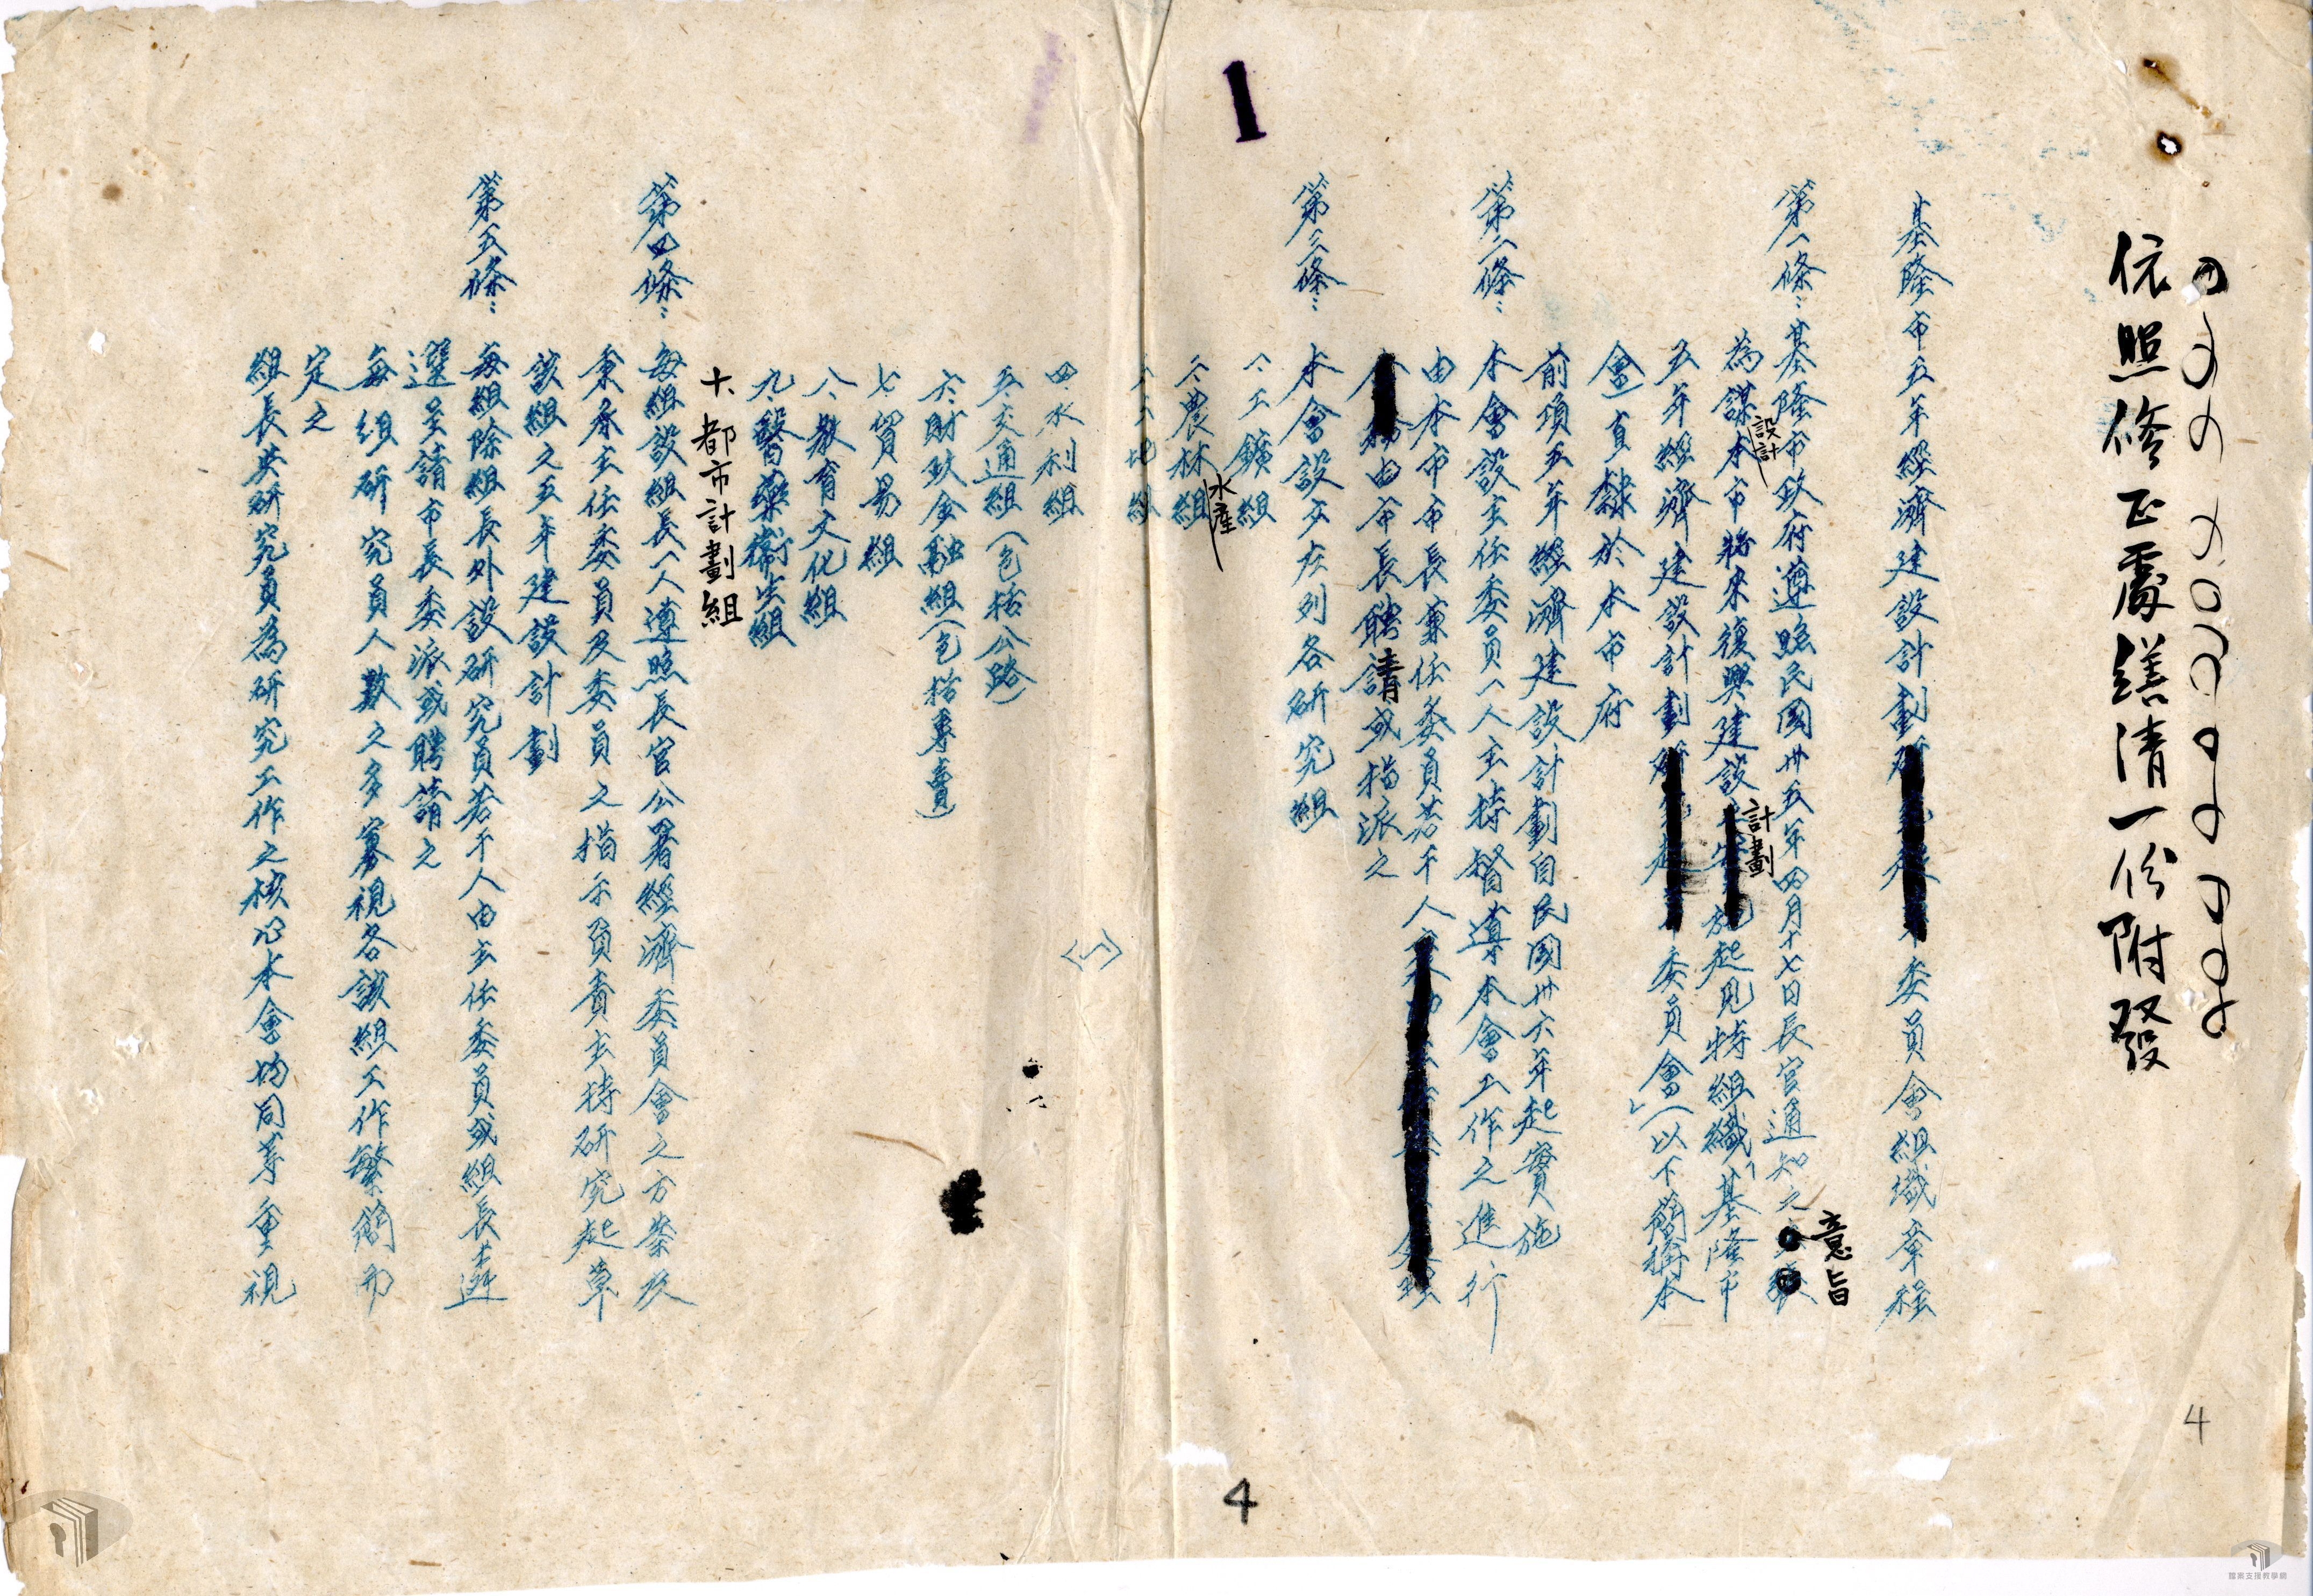 依照修正處繕清一份附發
基隆市五年經濟建設計劃委員會組織章程
第一條：基隆市政府遵照民國卅五年四月十七日長官通知之意旨
為謀設計本市將來復興建設計劃施起見特組織「基隆市
五年經濟建設計劃委員會」(以下簡稱本
會)直隸於本市府
前項五年經濟建設計劃自民國卅六年起實施
第二條：本會設主任委員一人主持督導本會工作之進行
由本市市長兼任委員若干人
由市長聘請或指派之
第三條：本會設立左列各研究組
一、工鑛組
二、農林水產組
三、土地組
四、水利組
五、交通組(包括公路)
六、財政金融組(包括專賣)
七、貿易組
八、教育文化組
九、醫藥衛生組
十、都市計劃組
第四條：每組設組長一人遵照長官公署經濟委員會之方案及
秉承主任委員及委員之指示負責主持研究起草
該組之五年建設計劃
第五條：每組除組長外設研究員若干人由主任委員或組長遴
選呈請市長委派或聘請之
每組研究員人數之多寡視各該組工作繁簡而
定之
組長共研究員為研究工作之核心本會均同等重視
〈1〉
1
4
4
檔案支援教學網